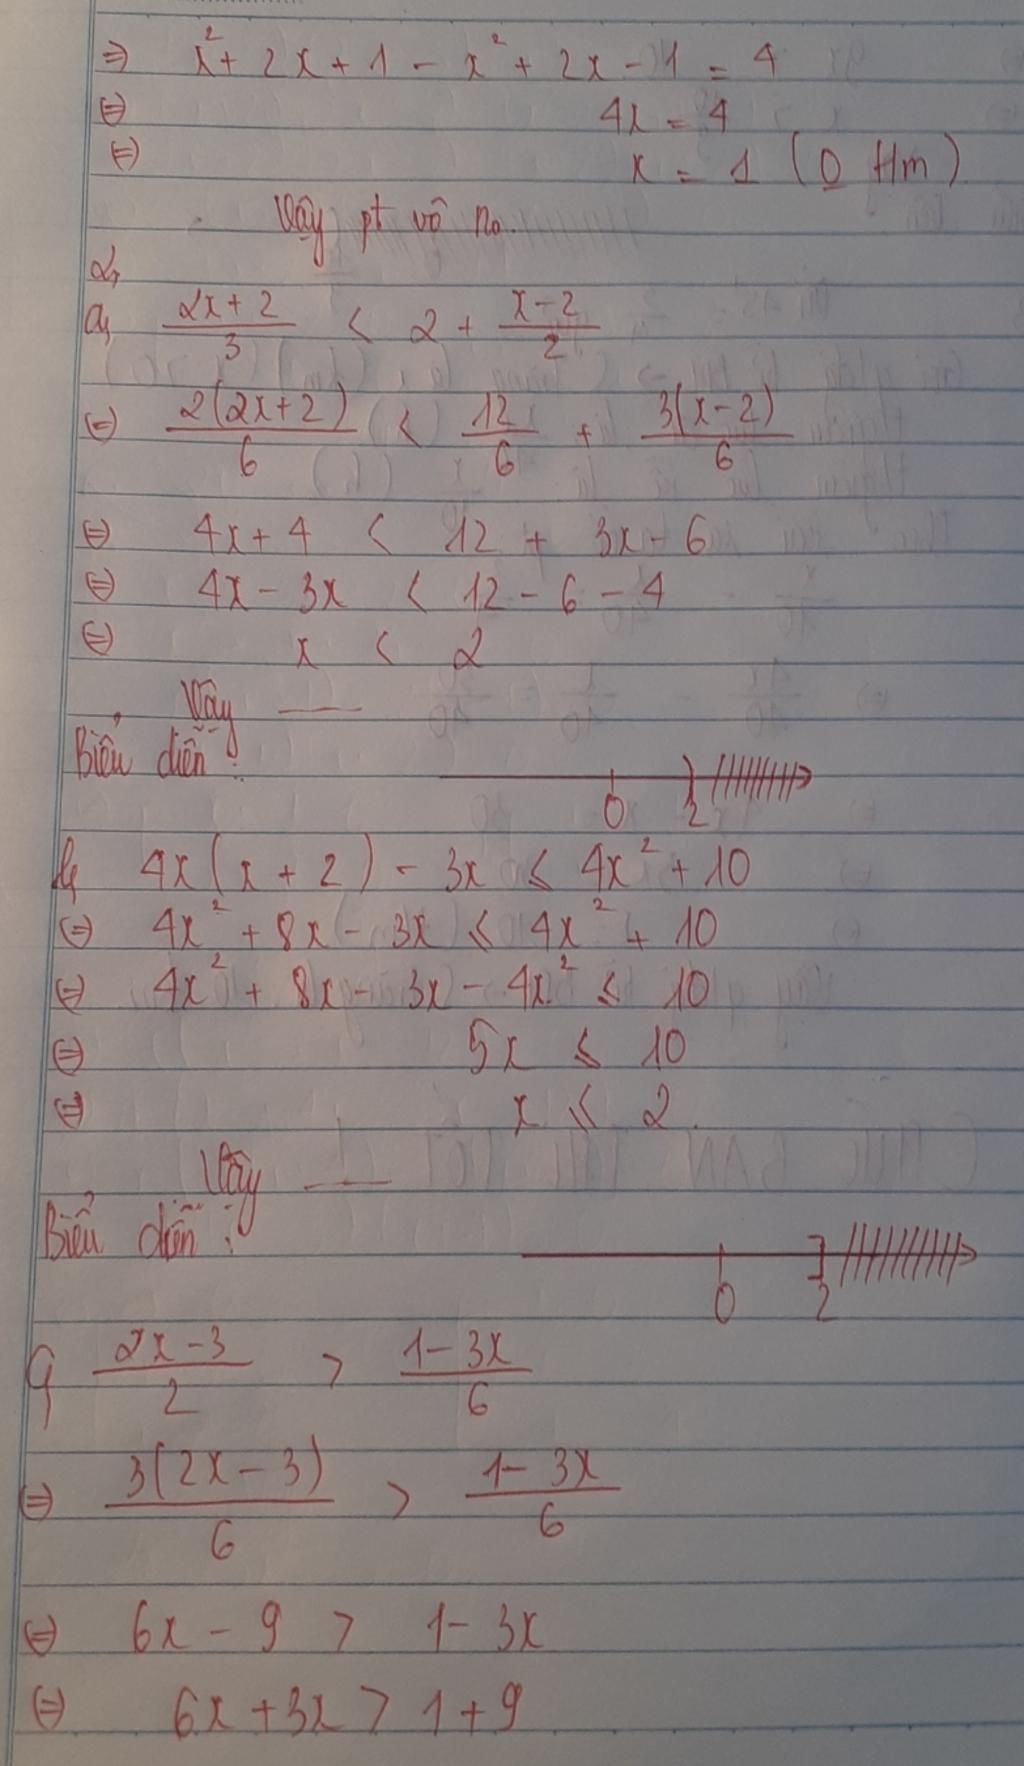 ⇒ x² + 2x + 1 - x² + 2x - 1 = 4
⇔ 4x = 4
⇔ x = 1 (0 tm)
Vậy pt vô no.
2,
a, (2x+2)/3 < 2 + (x-2)/2
⇔ 2(2x+2)/6 < 12/6 + 3(x-2)/6
⇔ 4x + 4 < 12 + 3x - 6
⇔ 4x - 3x < 12 - 6 - 4
⇔ x < 2
Vậy —
Biểu diễn:
0 2
b, 4x(x + 2) - 3x ≤ 4x² + 10
⇔ 4x² + 8x - 3x ≤ 4x² + 10
⇔ 4x² + 8x - 3x - 4x² ≤ 10
⇔ 5x ≤ 10
⇔ x ≤ 2.
Vậy —
Biểu diễn:
0 2
c, (2x-3)/2 > (1-3x)/6
⇔ 3(2x-3)/6 > (1-3x)/6
⇔ 6x - 9 > 1 - 3x
⇔ 6x + 3x > 1 + 9